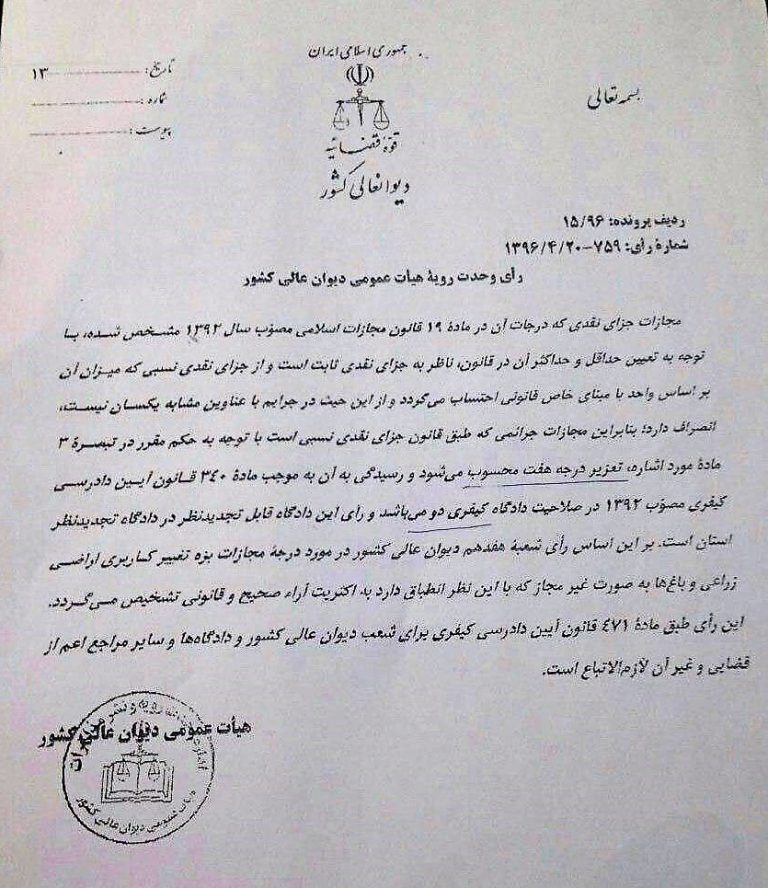 جمهوری اسلامی ایران
بسمه تعالی
قوّهٔ قضائیه
دیوانعالی کشور
تاریخ: ۱۳
شماره:
پیوست:
ردیف پرونده: ۱۵/۹۶
شمارهٔ رأی: ۷۵۹-۱۳۹۶/۴/۲۰
رأی وحدت رویهٔ هیأت عمومی دیوان عالی کشور
مجازات جزای نقدی که درجات آن در مادهٔ ۱۹ قانون مجازات اسلامی مصوّب سال ۱۳۹۲ مشخص شده، با
توجه به تعیین حداقل و حداکثر آن در قانون، ناظر به جزای نقدی ثابت است و از جزای نقدی نسبی که میزان آن
بر اساس واحد یا مبنای خاص قانونی احتساب می‌گردد و از این حیث در جرایم با عناوین مشابه یکسان نیست،
انصراف دارد؛ بنابراین مجازات جرائمی که طبق قانون جزای نقدی نسبی است با توجه به حکم مقرر در تبصرهٔ ۳
مادهٔ مورد اشاره، تعزیر درجه هفت محسوب می‌شود و رسیدگی به آن به موجب مادهٔ ۳۴۰ قانون آیین دادرسی
کیفری مصوّب ۱۳۹۲ در صلاحیت دادگاه کیفری دو می‌باشد و رأی این دادگاه قابل تجدیدنظر در دادگاه تجدیدنظر
استان است. بر این اساس رأی شعبهٔ هفدهم دیوان عالی کشور در مورد درجهٔ مجازات بزه تغییر کاربری اراضی
زراعی و باغ‌ها به صورت غیر مجاز که با این نظر انطباق دارد به اکثریت آراء صحیح و قانونی تشخیص می‌گردد.
این رأی طبق مادهٔ ۴۷۱ قانون آیین دادرسی کیفری برای شعب دیوان عالی کشور و دادگاه‌ها و سایر مراجع اعم از
قضایی و غیر آن لازم‌الاتباع است.
هیأت عمومی دیوان عالی کشور
هیأت عمومی دیوان عالی کشور